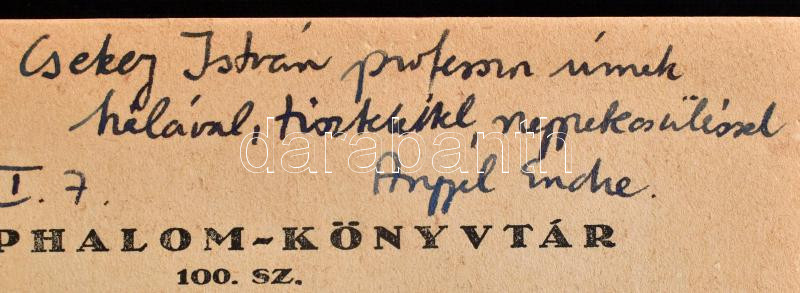 Csekey István professor úrnak
hálával, tisztelettel, nagyrabecsüléssel
Angyal Endre.
I. 7.
PHALOM-KÖNYVTÁR
100. SZ.
darabanth